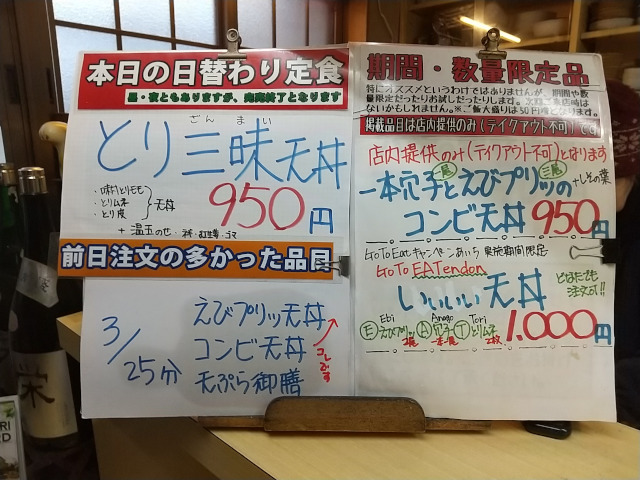 本日の日替わり定食
昼・夜ともありますが、完売終了となります
とり三昧天丼
ざんまい
・味付とりもも
・とりムネ
・とり皮
天丼
950円
+温玉のせ
前日注文の多かった品目
3/25分
えびプリッ天丼
コンビ天丼
天ぷら御膳
コレです
期間・数量限定品
特にオススメというわけではありませんが、期間や数
量限定だったりお試しだったりします。次回ご来店時は
ないかもしれません。※ご飯大盛りは50円増となります。
掲載品目は店内提供のみ(テイクアウト不可)です
店内提供のみ(テイクアウト不可)となります
一本穴子とえびプリッの
+しその葉
コンビ天丼950円
GoTo Eatキャンペーンあいち 実施期間限定
GoTo EATendon
いいいい天丼
どなたでも
注文可!!
Ebi Anago Tori
Ⓔえびプリッ Ⓐ穴子 Ⓣとりムネ
2枚
1.000円
栄